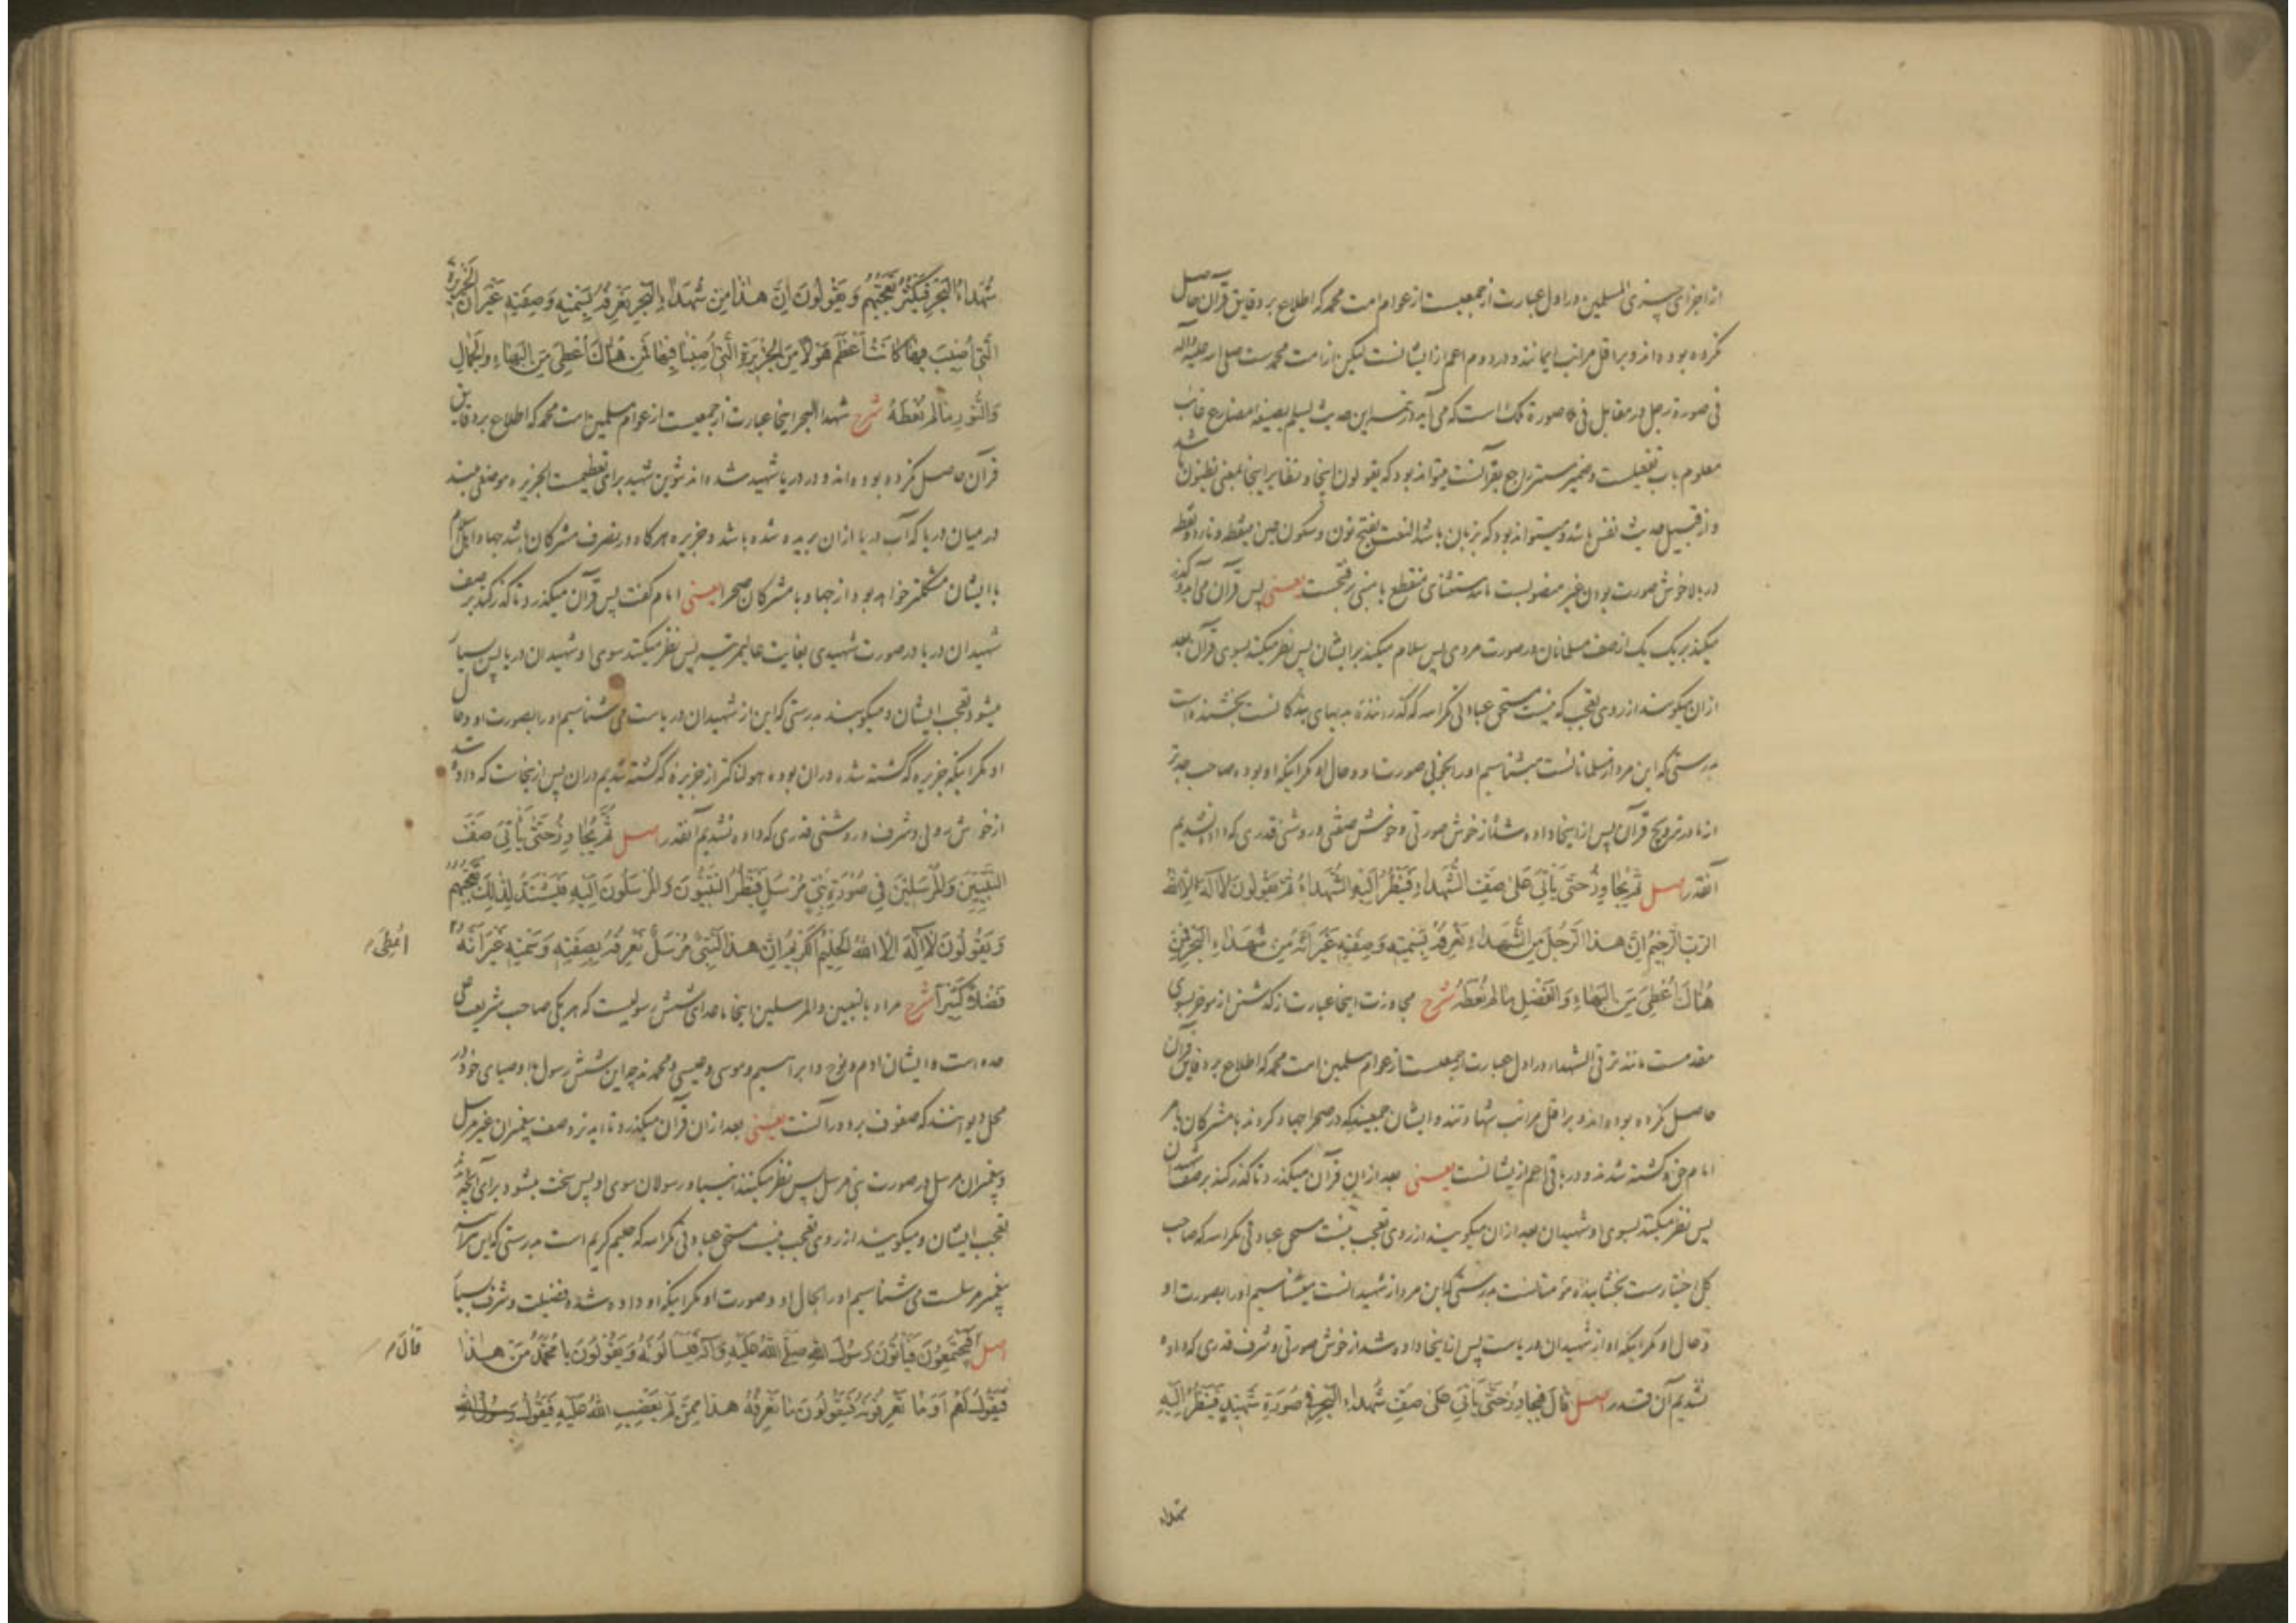 از اجزای چیزی المسلمین در اول عبارت از جمعیست از عوام امت محمد که اطلاع بر دقایق قرآن حاصل
نکرده بوده اند و بر اقل مراتب ایمانند و در دوم اعم از ایشانست لیکن از امت محمدست صلی الله علیه وآله
فی صورة رجل در مقابل فی صورة ملک است که می آید در تتمه این حدیث یسلم بصیغه مضارع غائب
معلوم باب تفعیلست و ضمیر مستتر راجع بقرآنست میتواند بود که یقولون اینجا و نظایر اینجا بمعنی یظنون باشد
و از قبیل حدیث نفس باشد و میتواند بود که بزبان باشد النعت بفتح نون و سکون عین بینقطه و تاء دو نقطه
در بالا خوش صورت بودن غیر منصوبست بر استثنای منقطع یا مبنی بر فتحست یعنی پس قرآن می آید و گذر
میکند بر یک یک از صف مسلمانان در صورت مردی پس سلام میکند بر ایشان پس نظر میکنند بسوی قرآن بعد
ازان میگویند از روی تعجب که نیست مستحق عبادتی مگر الله که گذراننده بدیهای بندگانست بخشنده است
بدرستی که این مرد از مسلمانانست میشناسیم او را بخوبی صورت او و حال او مگر اینکه او بوده صاحب جد تر
از ما در ترویج قرآن پس از اینجا داده شد از خوش صورتی و خوش صفتی و روشنی قدری که داده نشدیم
آنقدر اصل ثُمَّ يُجَاوِزُ حَتَّى يَأْتِيَ عَلَى صَفِّ الشُّهَدَاءِ فَيَنْظُرُ إِلَيْهِ الشُّهَدَاءُ ثُمَّ يَقُولُونَ لَا إِلَهَ إِلَّا اللهُ
الرَّبُّ الرَّحِيمُ إِنَّ هَذَا الرَّجُلَ مِنَ الشُّهَدَاءِ نَعْرِفُهُ بِسَمْتِهِ وَصِفَتِهِ غَيْرَ أَنَّهُ مِنْ شُهَدَاءِ الْبَحْرِ فَمِنْ
هُنَاكَ أُعْطِيَ مِنَ الْبَهَاءِ وَالْفَضْلِ مَا لَمْ نُعْطَهُ شرح مجاوزت اینجا عبارت از گذشتن از موخر بسوی
مقدمست مانند ترقی الشهداء در اول عبارت از جمعیست از عوام مسلمین امت محمد که اطلاع بر دقایق قرآن
حاصل نکرده بوده اند و بر اقل مراتب شهادتند و ایشان جمعیند که در صحرا جهاد کردند با مشرکان بامر
امام حق و کشته شدند و در باقی اعم از ایشانست یعنی بعد ازان قرآن میگذرد تا گذر کند بر صف شهیدان
پس نظر میکنند بسوی او شهیدان بعد ازان میگویند از روی تعجب نیست مستحق عبادتی مگر الله که صاحب
کل اختیارست بخشاینده مؤمنانست بدرستی که این مرد از شهیدانست میشناسیم او را بصورت او
و حال او مگر اینکه او از شهیدان دریاست پس از اینجا داده شد از خوش صورتی و شرف قدری که داده
نشدیم آن قدر اصل قَالَ فَيُجَاوِزُ حَتَّى يَأْتِيَ عَلَى صَفِّ شُهَدَاءِ الْبَحْرِ فِي صُورَةِ شَهِيدٍ فَيَنْظُرُ إِلَيْهِ
شهداء
شُهَدَاءُ الْبَحْرِ فَيَكْثُرُ تَعَجُّبُهُمْ وَيَقُولُونَ إِنَّ هَذَا مِنْ شُهَدَاءِ الْبَحْرِ نَعْرِفُهُ بِسَمْتِهِ وَصِفَتِهِ غَيْرَ أَنَّ الْجَزِيرَةَ
الَّتِي أُصِيبَ فِيهَا كَانَتْ أَعْظَمَ هَوْلًا مِنَ الْجَزِيرَةِ الَّتِي أُصِبْنَا فِيهَا فَمِنْ هُنَاكَ أُعْطِيَ مِنَ الْبَهَاءِ وَالْجَمَالِ
وَالنُّورِ مَا لَمْ نُعْطَهُ شرح شهداء البحر اینجا عبارت از جمعیست از عوام مسلمین امت محمد که اطلاع بر دقایق
قرآن حاصل نکرده بوده اند و در دریا شهید شده اند تنوین شهید برای تعظیمست الجزیره موضعی بلند
در میان دریا که آب دریا ازان بریده شده باشد و جزیره هرگاه در تصرف مشرکان باشد جهاد اهل اسلام
با ایشان مشکلتر خواهد بود از جهاد با مشرکان صحرا یعنی امام گفت پس قرآن میگذرد تا گذر کند بر صف
شهیدان دریا در صورت شهیدی بغایت عالیمرتبه پس نظر میکنند سوی او شهیدان دریا پس بسیار
میشود تعجب ایشان و میگویند بدرستی که این از شهیدان دریاست می شناسیم او را بصورت او و حال
او مگر اینکه جزیره که کشته شده دران بوده هولناکتر از جزیره که کشته شدیم دران پس از اینجاست که داده شد
از خوش روئی و شرف و روشنی قدری که داده نشدیم آنقدر اصل ثُمَّ يُجَاوِزُ حَتَّى يَأْتِيَ صَفَّ
النَّبِيِّينَ وَالْمُرْسَلِينَ فِي صُورَةِ نَبِيٍّ مُرْسَلٍ فَيَنْظُرُ النَّبِيُّونَ وَالْمُرْسَلُونَ إِلَيْهِ فَيَشْتَدُّ لِذَلِكَ تَعَجُّبُهُمْ
وَيَقُولُونَ لَا إِلَهَ إِلَّا اللهُ الْحَلِيمُ الْكَرِيمُ إِنَّ هَذَا لَنَبِيٌّ مُرْسَلٌ نَعْرِفُهُ بِصِفَتِهِ وَسَمْتِهِ غَيْرَ أَنَّهُ
أُعْطِيَ
فَضْلًا كَثِيرًا شرح مراد بالنبیین والمرسلین اینجا ماعدای شش رسولیست که هر یکی صاحب شریعت علی
حده است و ایشان آدم و نوح و ابراهیم و موسی و عیسی و محمدند چه این شش رسول با اوصیای خود در
یعنی بعد ازان قرآن میگذرد تا آید نزد صف پیغمبران غیر مرسل
و پیغمبران مرسل در صورت نبی مرسل پس نظر میکنند انبیا و رسولان سوی او پس سخت میشود برای آنچه
تعجب ایشان و میگویند از روی تعجب نیست مستحق عبادتی مگر الله که حلیم کریم است بدرستی که این هرآینه
پیغمبر مرسلست می شناسیم او را بحال او و صورت او مگر اینکه او داده شده فضیلت و شرف بسیار
اصل فَيَجْتَمِعُونَ فَيَأْتُونَ رَسُولَ اللهِ صَلَّى اللهُ عَلَيْهِ وَآلِهِ فَيَسْأَلُونَهُ وَيَقُولُونَ يَا مُحَمَّدُ مَنْ هَذَا
قَالَ
فَيَقُولُ لَهُمْ أَوَمَا تَعْرِفُونَهُ فَيَقُولُونَ مَا نَعْرِفُهُ هَذَا مِمَّنْ لَمْ يَغْضَبِ اللهُ عَلَيْهِ فَيَقُولُ رَسُولُ اللهِ